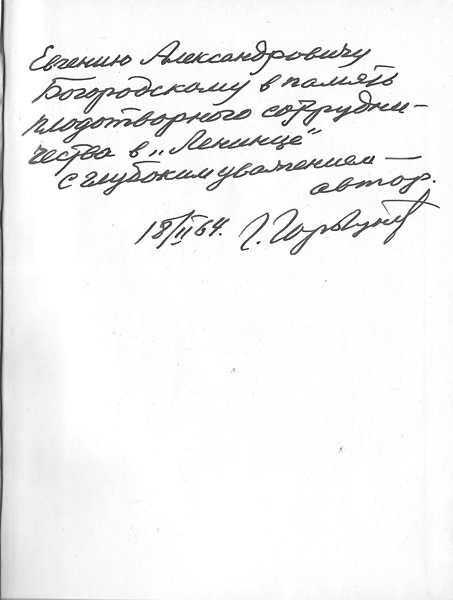 Евгению Александровичу
Богородскому в память
плодотворного сотрудни-
чества в „Ленинце"
с глубоким уважением —
автор.
18/II 64. Г. Горбунов